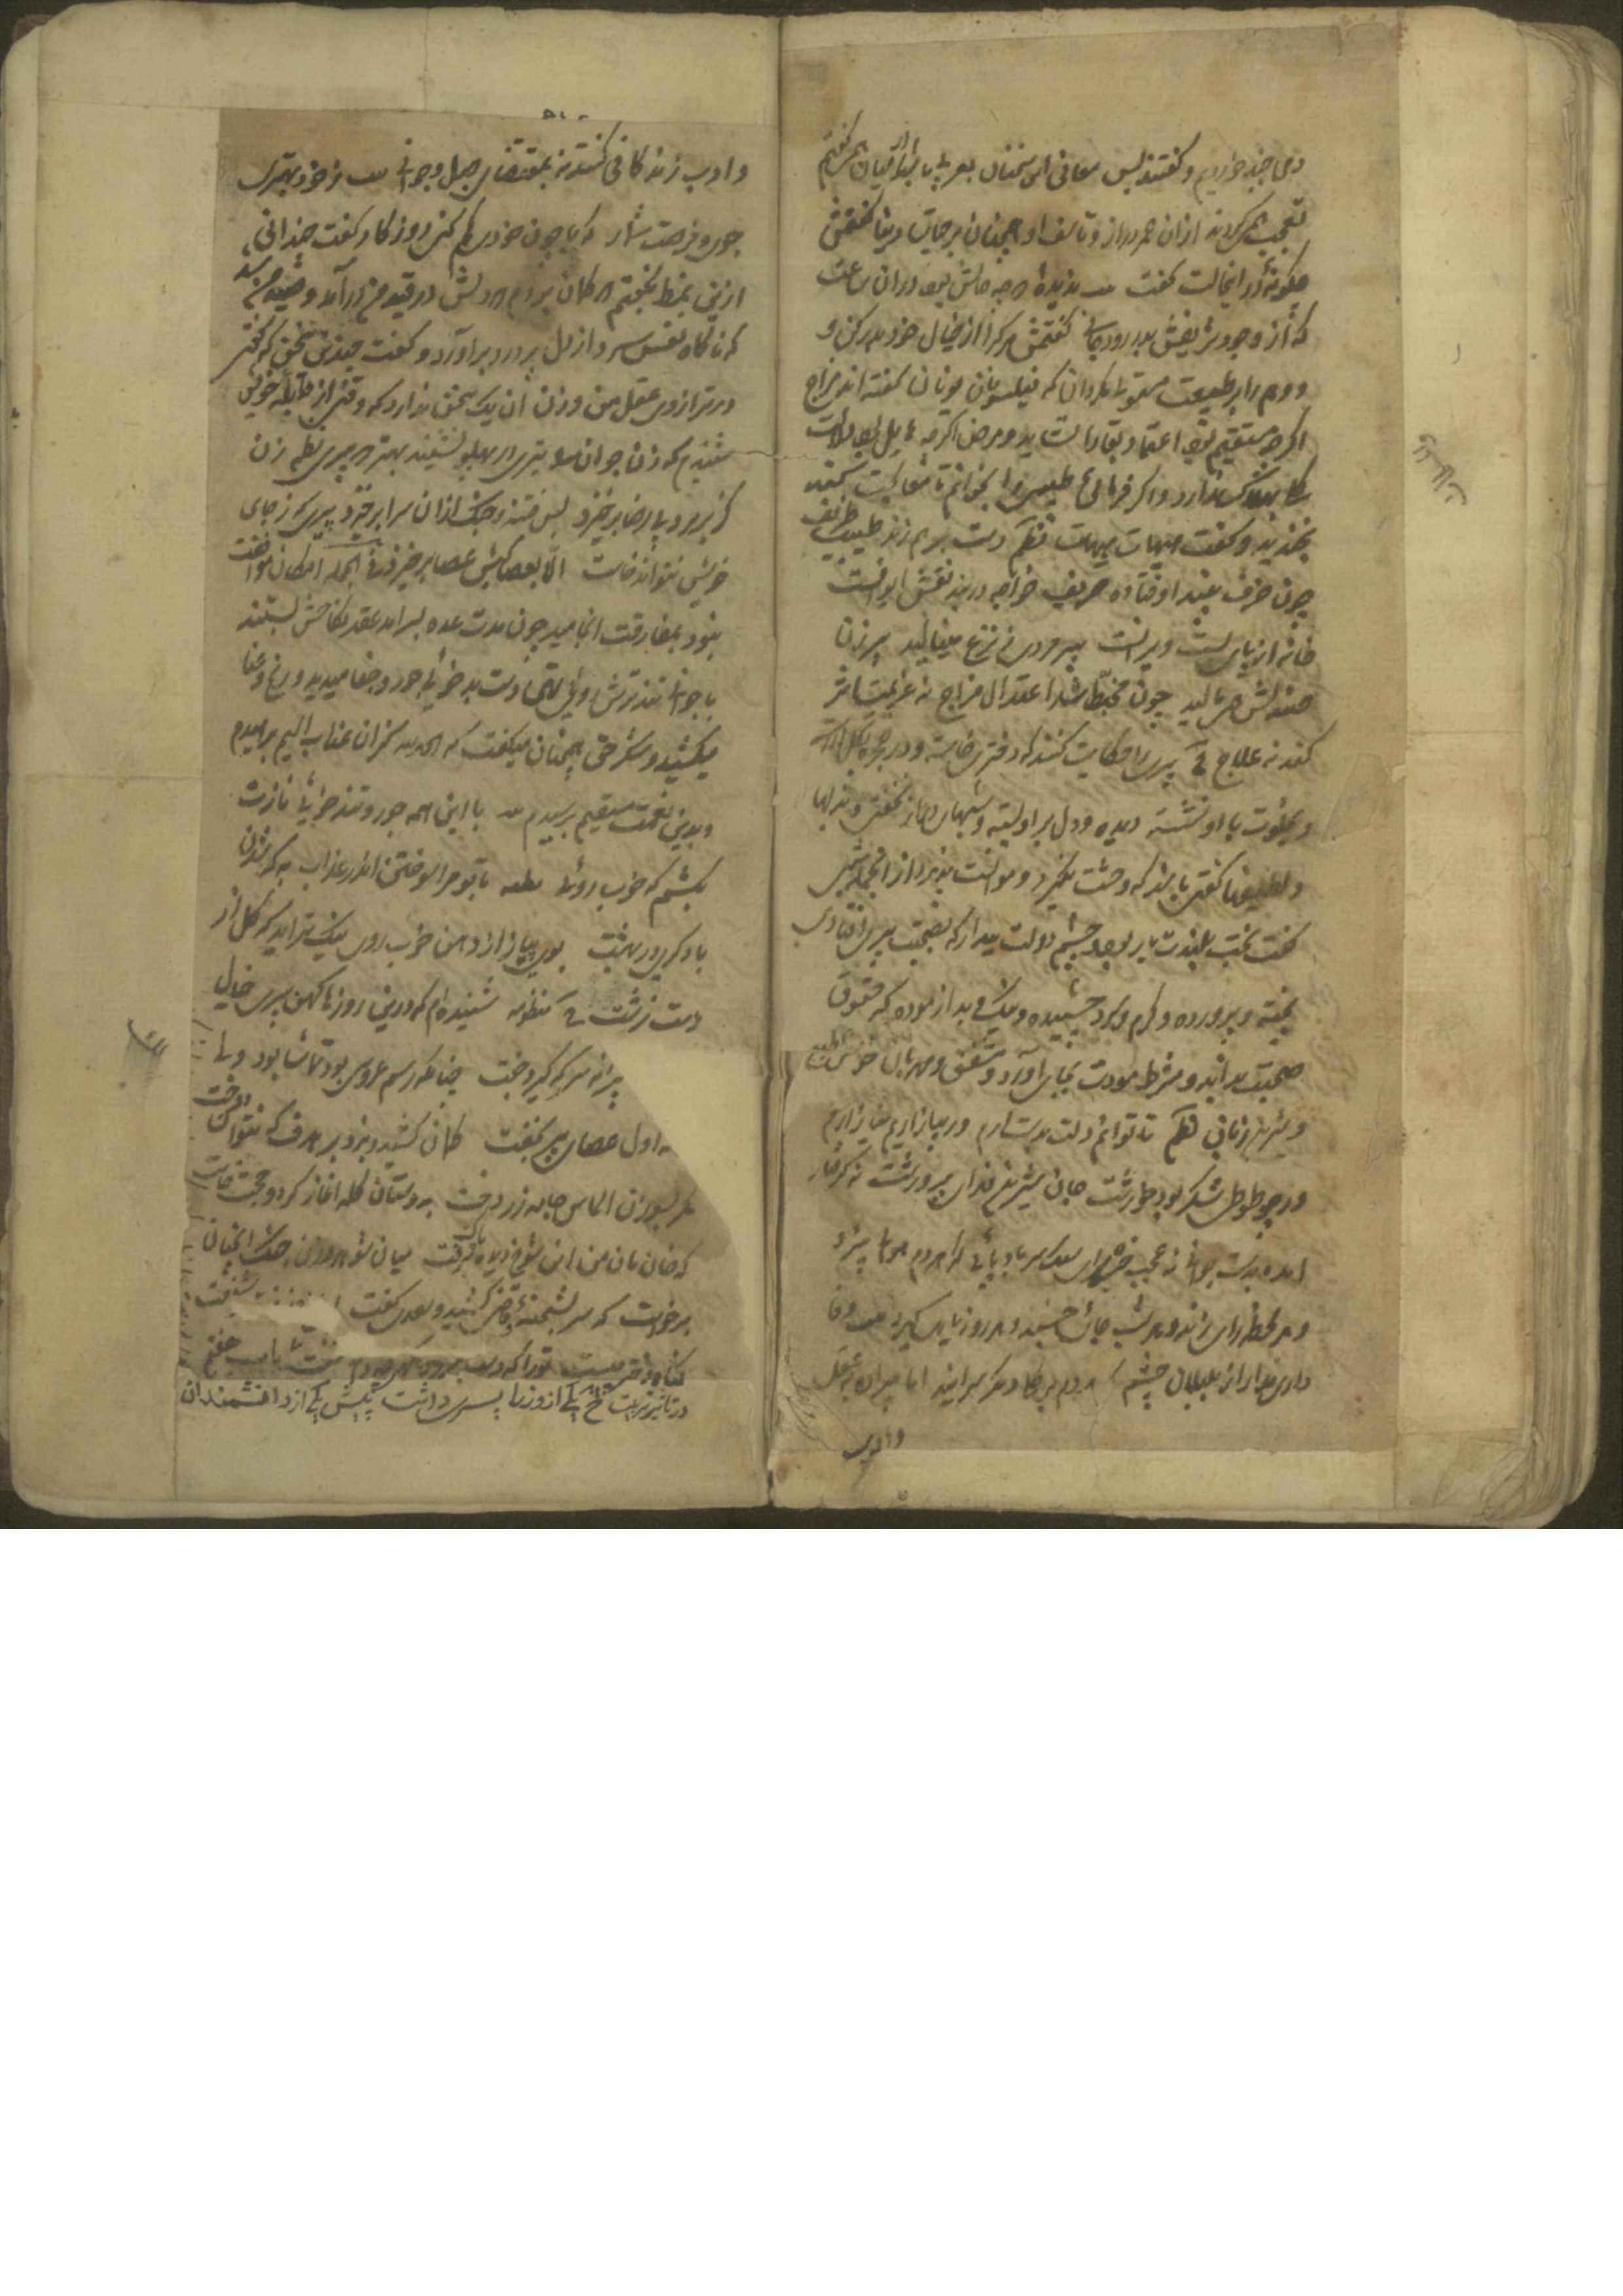 دمی چند خوردیم و گفتند پس معانی این سخنان بعربی با شامیان همی گفتم
تعجب همی کردند از آن عمر دراز و تاسف او همچنان بر حیات دنیا گفتمش
چگونه در این حالت گفت ندیده که چه حالش بود در آن ساعت
که از وجود شریفش بدر رود جانی گفتمش مرگ را از خیال خود بدر کن و
وهم را بر طبیعت مستولی مگردان که فیلسوفان یونان گفته اند مزاج
اگرچه مستقیم بود اعتماد بقا را نشاید و مرض اگرچه هایل بود دلالت
کلی بهلاک ندارد و اگر فرمائی طبیبی را بخوانم تا معالجت کند
بخندید و گفت هیهات هیهات نظم دست بر هم زند طبیب ظریف
چون خرف بیند اوفتاده حریف خواجه در بند نقش ایوانست
خانه از پای بست ویرانست پیر مردی ز نزع مینالید پیرزن
صندلش همی مالید چون مخبط شد اعتدال مزاج نه عزیمت اثر
کند نه علاج پیری را حکایت کنند که دختری خواسته و حجره بگل آراسته
و بخلوت با او نشسته دیده و دل بر او بسته و شبهای دراز نخفتی و بذلها
و لطیفها گفتی باشد که وحشت نگیرد و موانست پذیرد از آنجمله شبی
گفت بخت بلندت یار بود و چشم دولت بیدار که بصحبت پیری افتادی
پخته و پرورده و گرم و سرد چشیده و نیک و بد آزموده که حقوق
صحبت بداند و شرط مودت بجای آورد و مشفق و مهربان خوش طبع
و شیرین زبان نظم تا توانم دلت بدست آرم ور بیازاریم نیازارم
ور چو طوطی شکر بود خورشت جان شیرین فدای پرورشت نه گرفتار
آمده بدست جوانی معجب خیره رای سبک سر باد پائی که هر دم هوائی پزد
و هر لحظه رائی زند و هر شب جائی خسبد و هر روز یاری گیرد وفا
داری مدار از بلبلان چشم که هر دم بر گلی دیگر سرایند اما پیران بعقل
وادب
وادب زندگانی کنند نه بمقتضای جهل و جوانی ز خود بهتری
جوی و فرصت شمار که با چون خودی گم کنی روزگار گفت چندانی
ازین نمط بگفتم که گمان بردم که دلش در قید من درآمد و صید من شد
که ناگاه نفسی سرد از دل پر درد برآورد و گفت چندین سخن که گفتی
در ترازوی عقل من وزن آن یک سخن ندارد که وقتی از قابله خویش
شنیدم که زن جوان را تیری در پهلو نشیند به که پیری نظم زن
کز بر مرد بی رضا برخیزد بس فتنه و جنگ از آن سرا برخیزد پیری که ز جای
خویش نتواند خاست الا بعصا کیش عصا برخیزد فی الجمله امکان موافقت
نبود بمفارقت انجامید چون مدت عده برآمد عقد نکاحش بستند
با جوانی تند ترش روی تهی دست بد خوی جور و جفا میدید و رنج و عنا
میکشید و شکر حق همچنان میگفت که الحمد لله کز آن عذاب الیم برهیدم
و بدین نعمت مقیم برسیدم با این همه جور و تند خوئی نازت
بکشم که خوب روئی قطعه با تو مرا سوختن اندر عذاب به که شدن
با دگری در بهشت بوی پیاز از دهن خوب روی نیک تر آید که گل از
دست زشت منظومه شنیده ام که درین روزها کهن پیری خیال
پیرانه سر که گیرد جفت چنانکه رسم عروسی بود تماشا بود ولی
اول عصای پیر بخفت کمان کشید و نزد بر هدف که نتوان دوخت
مگر بسوزن الماس جامه زر دفت بدوستان گله آغاز کرد و حجت خاست
که خان و مان من این شوخ دیده پاک برفت میان شوهر و زن جنگ آنچنان
برخواست که سر بشحنه و قاضی کشید و سعدی گفت
گناه دختر چیست ترا که دست بلرزد گهر چه دانی سفت باب هفتم
در تاثیر تربیت یکی از وزرا پسری داشت پیش یکی از دانشمندان